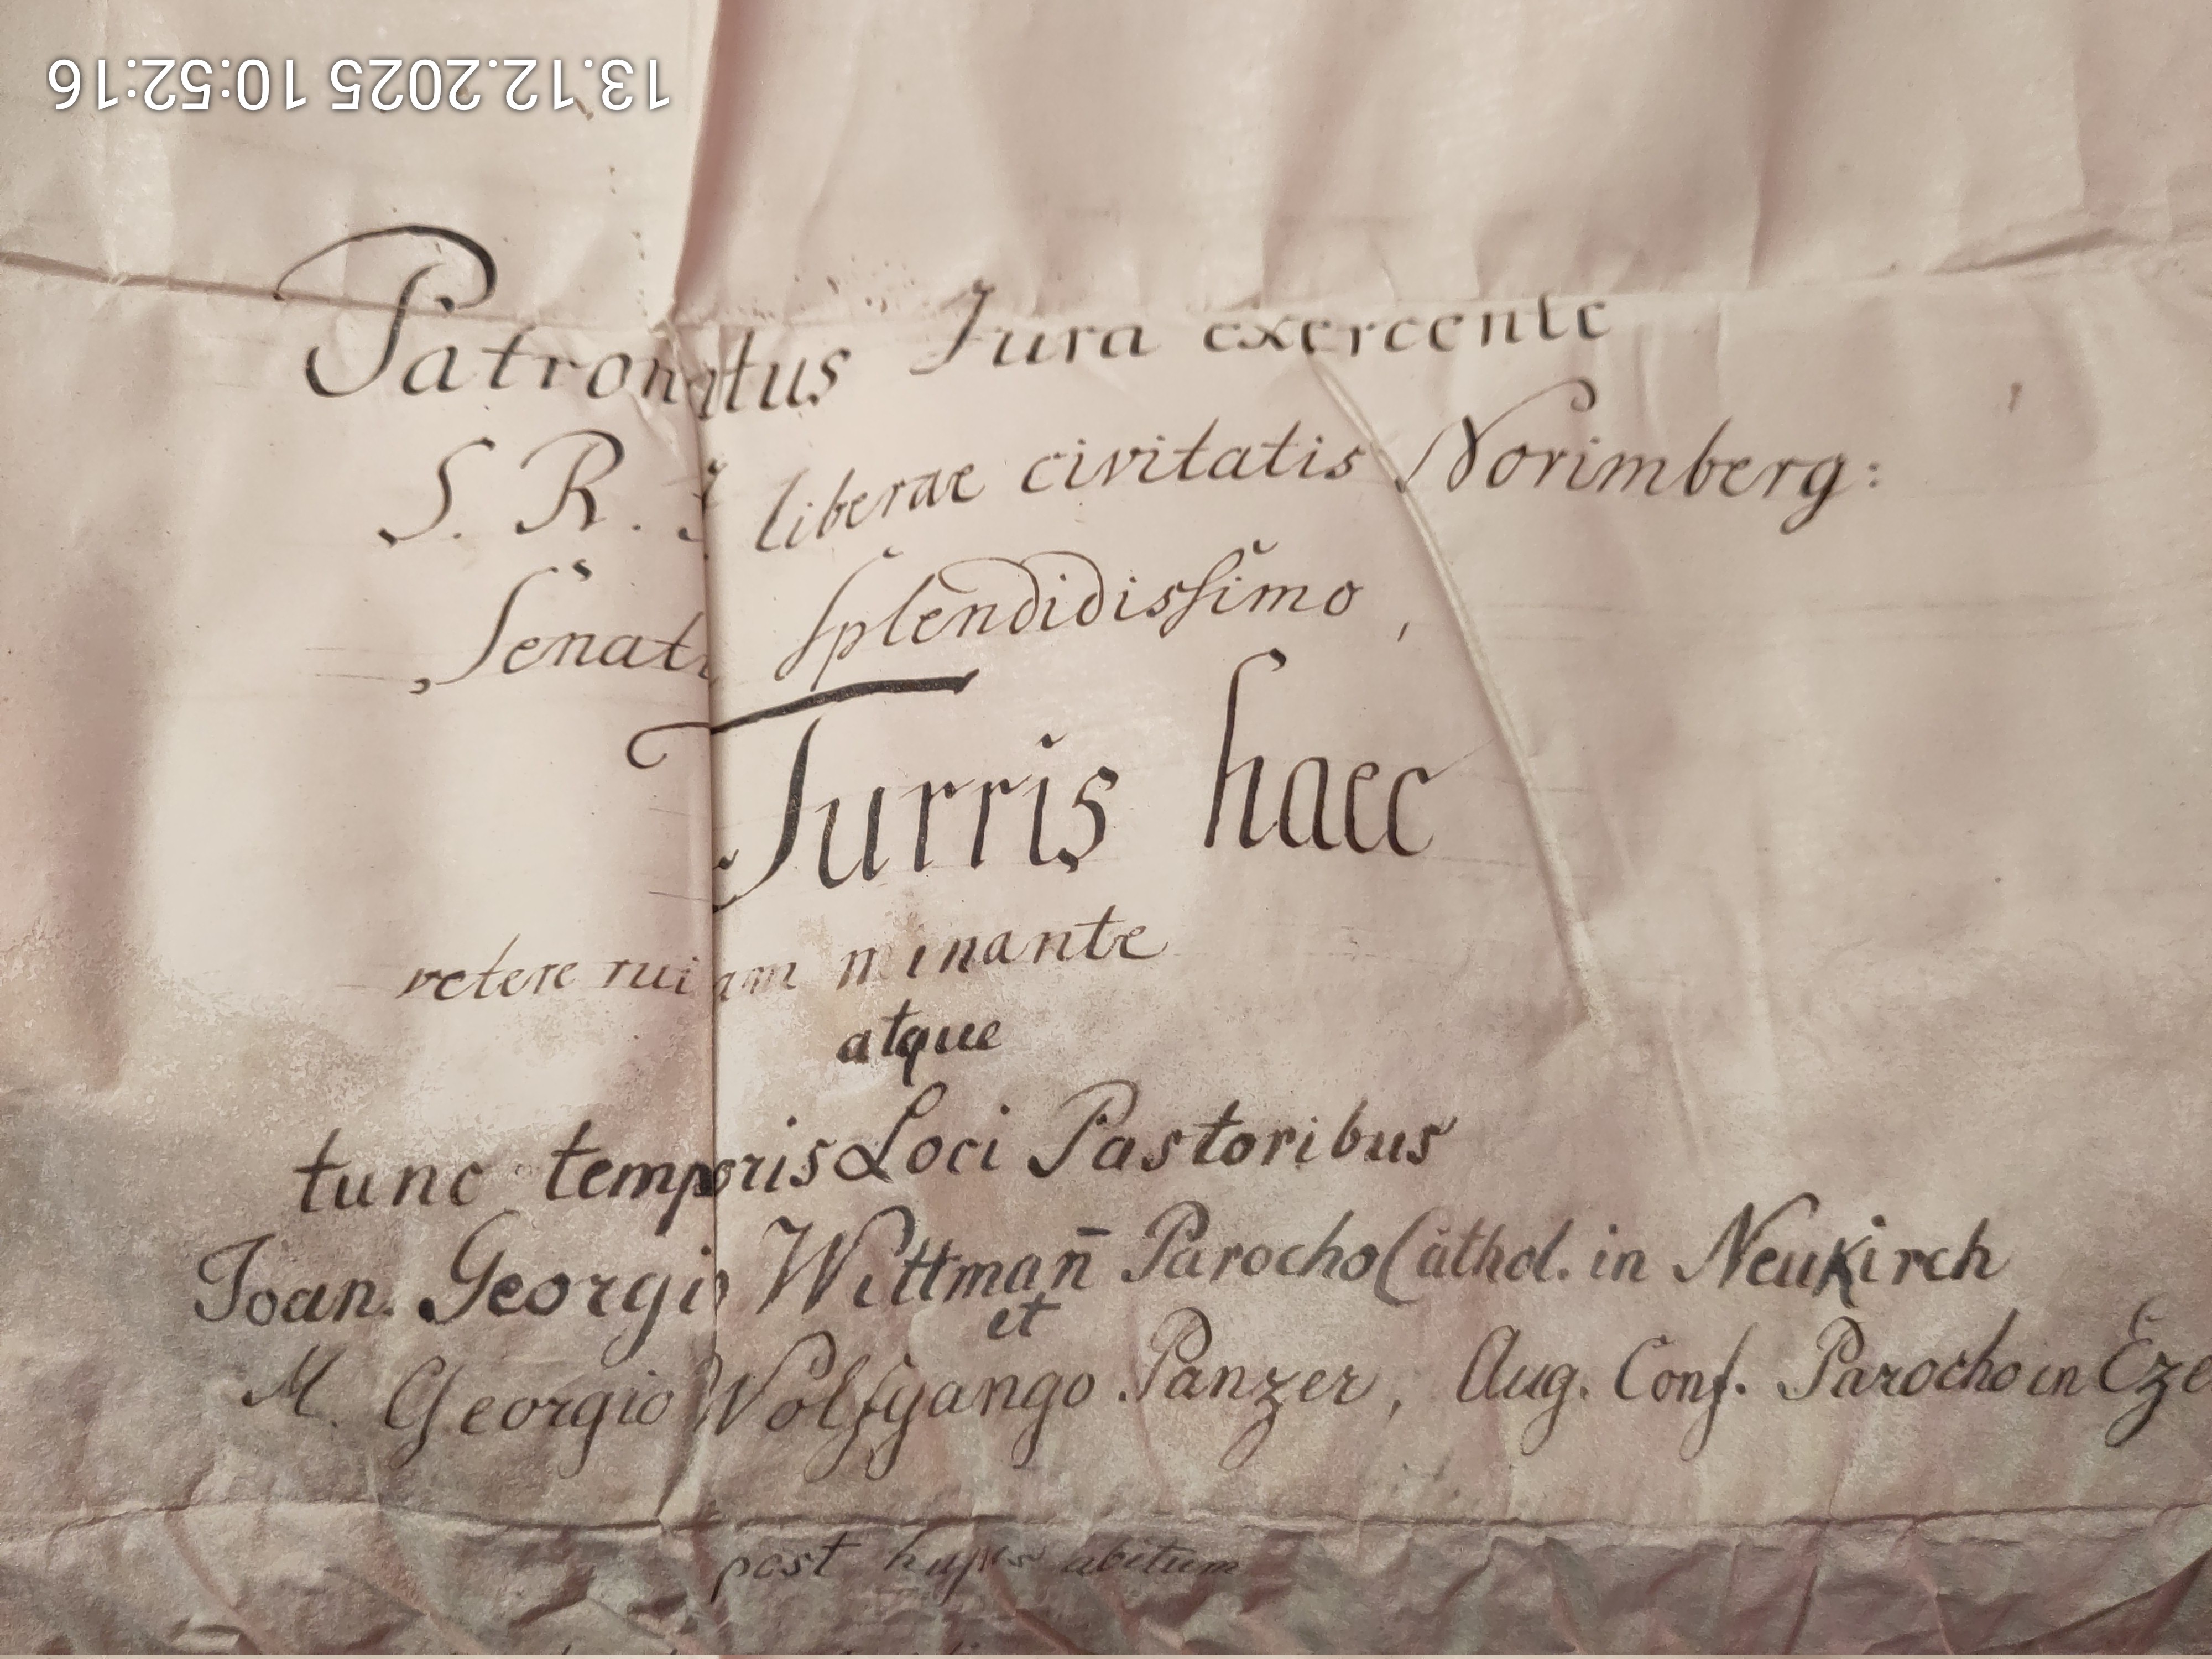 13.12.2025 10:52:16
Patronatus Jura exercente
S. R. J liberae civitatis Norimberg:
Senatu splendidissimo,
Turris haec
vetere ruinam minante
atque
tunc temporis Loci Pastoribus
Joan. Georgio Wittman̄ Parocho Cathol. in Neukirch
et
M. Georgio Wolfgango Panzer, Aug. Conf. Parocho in Eze
post hujus abitum